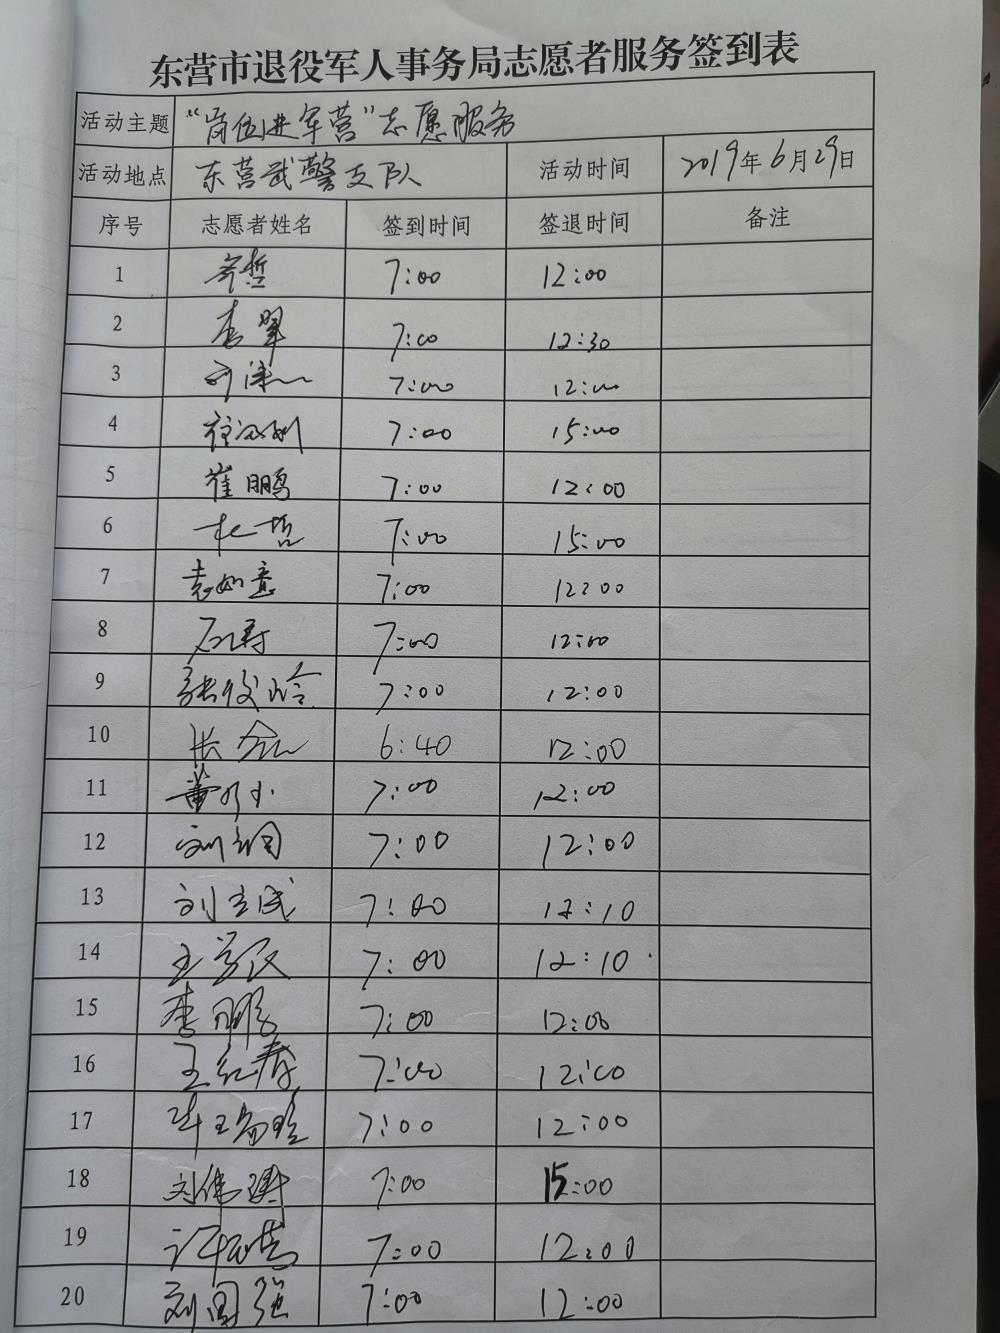 东营市退役军人事务局志愿者服务签到表
活动主题 “岗位进军营”志愿服务
活动地点 东营武警支队 活动时间 2019年6月29日
序号 志愿者姓名 签到时间 签退时间 备注
1 7:00 12:00
2 李翠 7:00 12:30
3 7:00 12:00
4 7:00 15:00
5 崔鹏 7:00 12:00
6 杜哲 7:00 15:00
7 袁如意 7:00 12:00
8 7:00 12:00
9 张俊玲 7:00 12:00
10 6:40 12:00
11 7:00 12:00
12 7:00 12:00
13 7:00 12:10
14 7:00 12:10
15 李鹏 7:00 12:00
16 王红春 7:00 12:00
17 7:00 12:00
18 7:00 15:00
19 7:00 12:00
20 刘国强 7:00 12:00